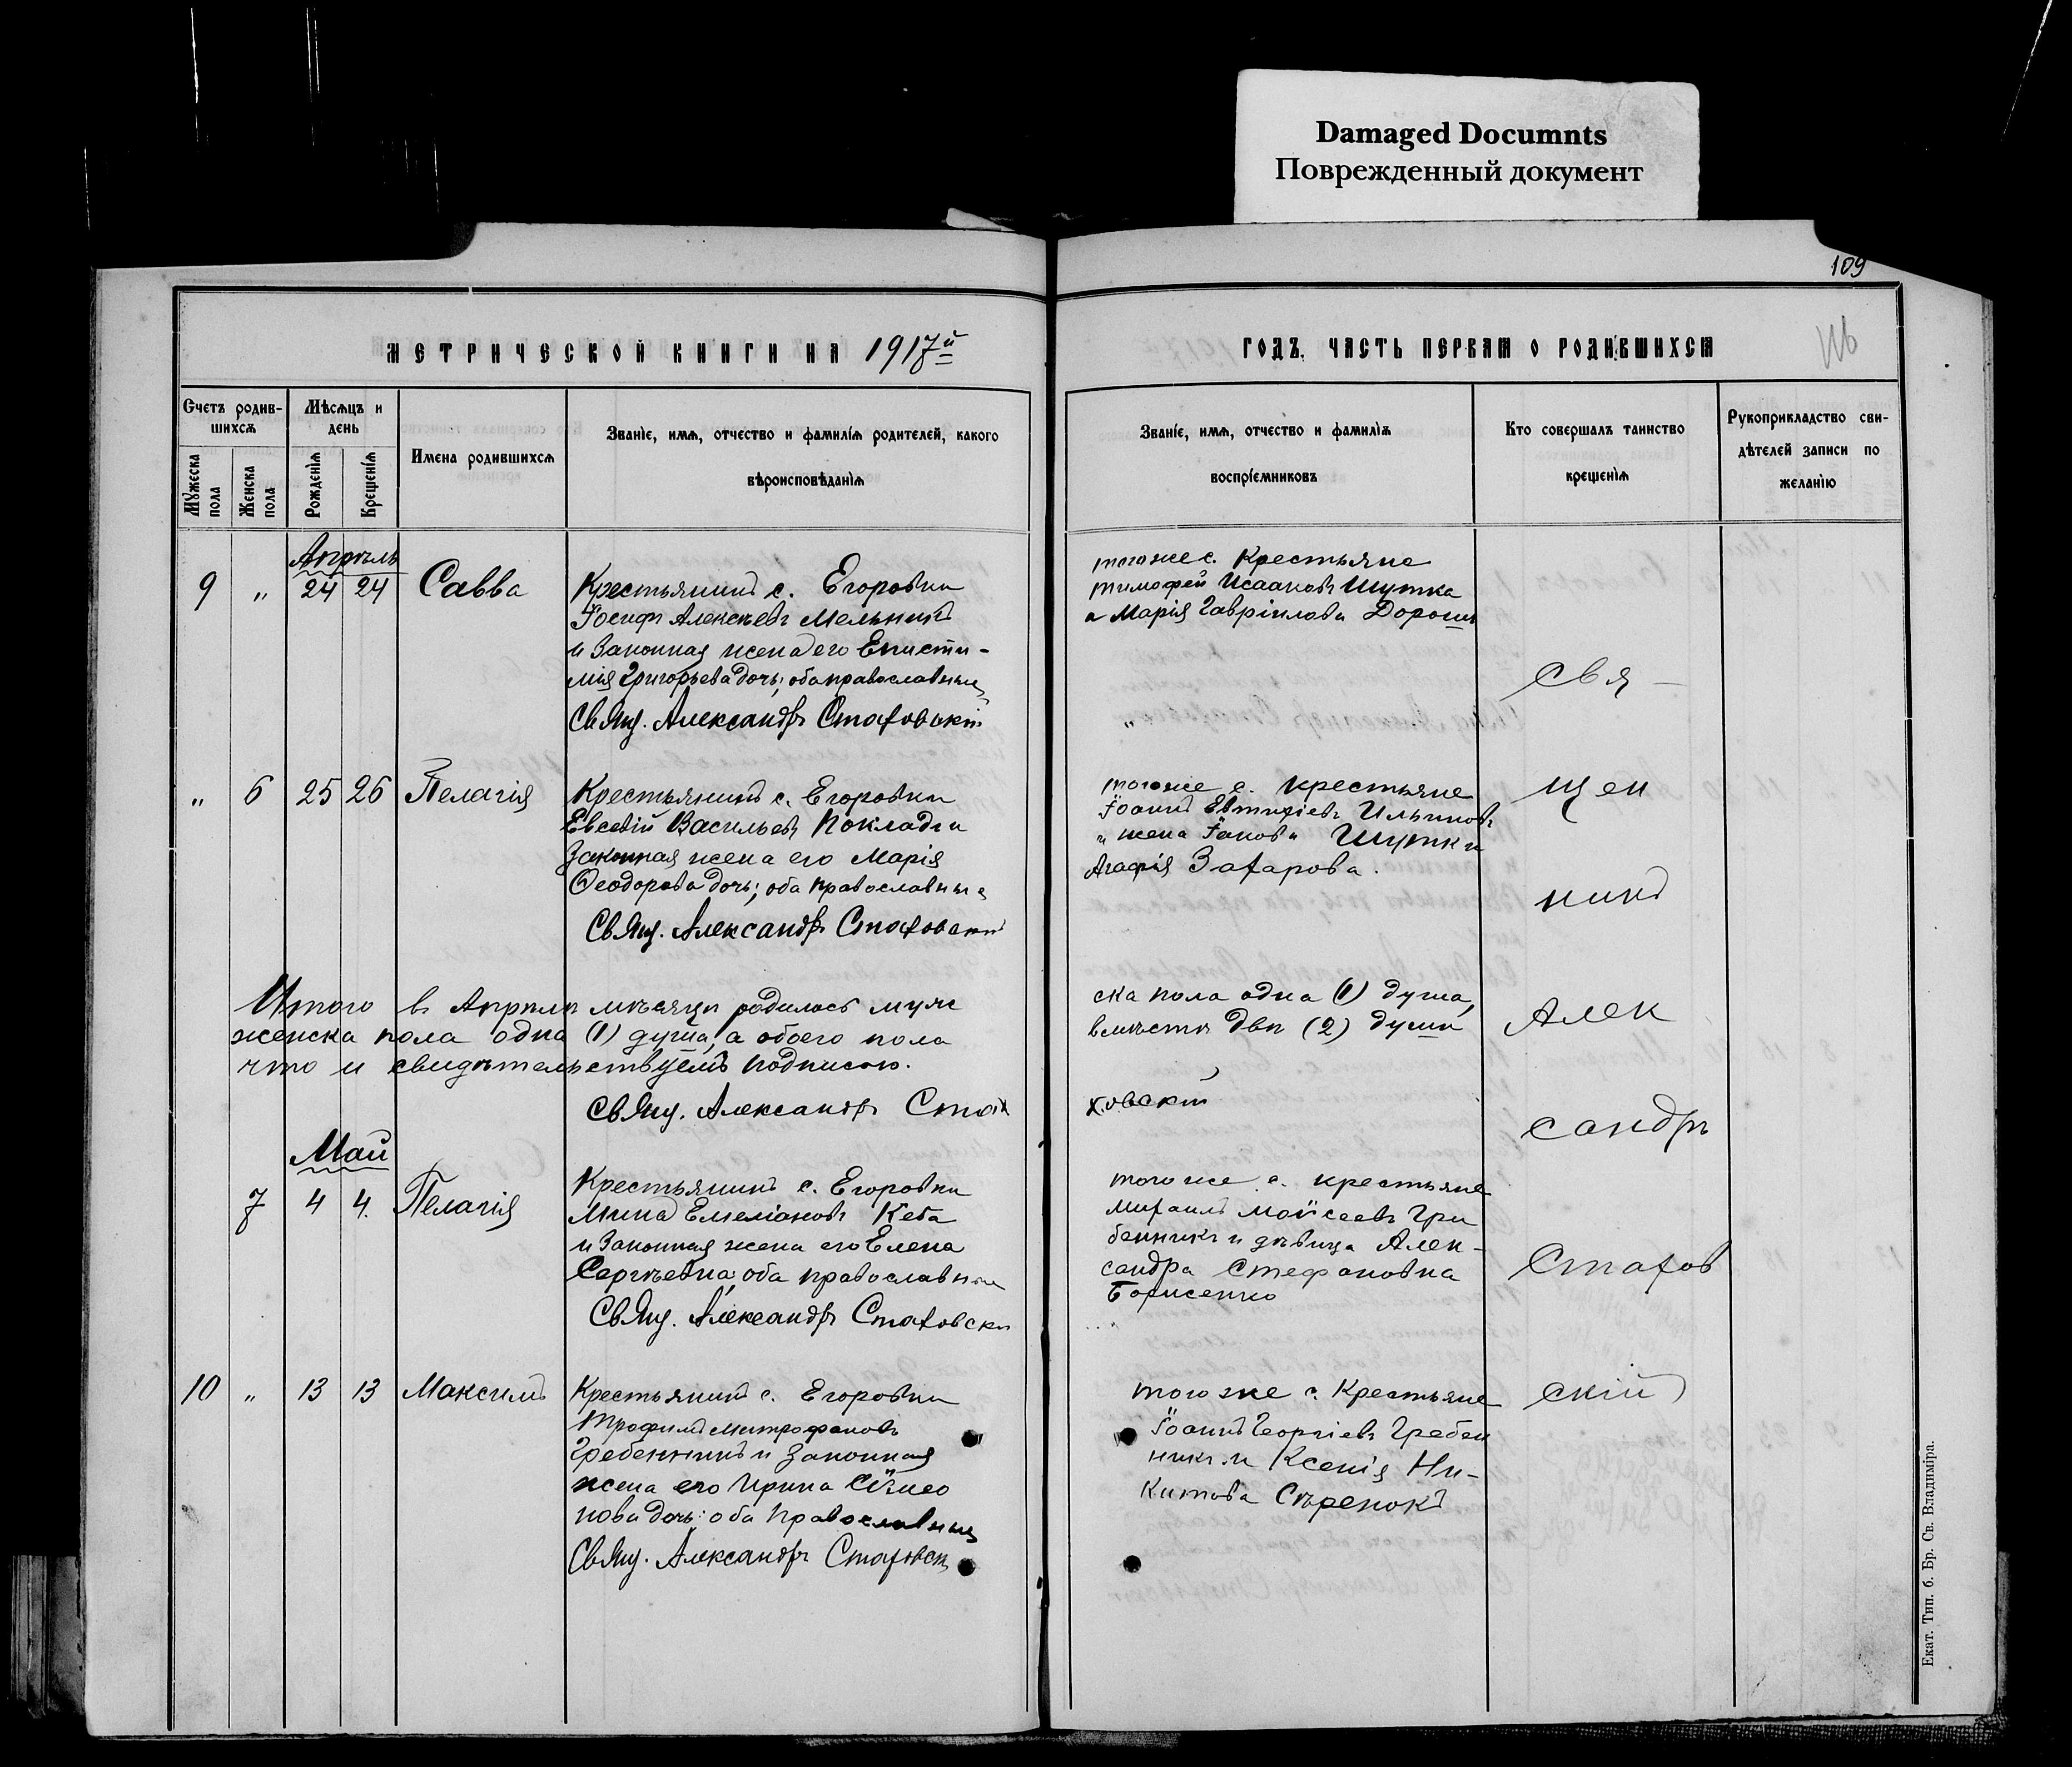 Damaged Documnts
Поврежденный документ
109
МЕТРИЧЕСКОЙ КНИГИ НА 1917й
ГОДЪ, ЧАСТЬ ПЕРВАЯ О РОДИВШИХСЯ
Счетъ родив-
шихся
Мѣсяцъ и
день
Мужеска
пола
Женска
пола
Рожденія
Крещенія
Имена родившихся
Званіе, имя, отчество и фамилія родителей, какого
вѣроисповѣданія
Званіе, имя, отчество и фамилія
воспріемниковъ
Кто совершалъ таинство
крещенія
Рукоприкладство сви-
дѣтелей записи по
желанію
Апрѣль
9 „ 24 24 Савва
Крестьянинъ с. Егоровки
Іосифъ Алексѣевъ Мельникъ
и Законная жена его Еписти-
мія Григорьева дочь; оба православные
Свящ. Александръ Стаховскій
того же с. Крестьяне
Тимофей Исааковъ Шутка
и Марія Гавріилова Дорошъ
„ 6 25 26 Пелагія
Крестьянинъ с. Егоровки
Евсевій Васильевъ Покладъ и
Законная жена его Марія
Феодорова дочь; оба православные
Свящ. Александръ Стаховскій
того же с. крестьяне
Іоаннъ Евтихіевъ Ильиновъ
и жена Іакова Шутки
Агафія Захарова.
Итого въ Апрѣлѣ мѣсяцѣ родилось муже
ска пола одна (1) душа,
женска пола одна (1) душа, а обоего пола
вмѣстѣ двѣ (2) души
что и свидѣтельствуемъ подписью.
Свящ. Александръ Стах
ховскій
Май
7 4 4. Пелагія
Крестьянинъ с. Егоровки
Мина Емеліановъ Кеба
и Законная жена его Елена
Сергѣевна; оба православные
Свящ. Александръ Стаховскій
того же с. крестьяне
Михаилъ Моисеевъ Гри
бенникъ и дѣвица Алек-
сандра Стефановна
Борисенко
10 „ 13 13 Максимъ
Крестьянинъ с. Егоровки
Трофимъ Митрофановъ
Гребенникъ и Законная
жена его Ирина Сѵмео
нова дочь: оба православные
Свящ. Александръ Стаховск
того же с. Крестьяне
Іоаннъ Георгіевъ Гребен
никъ и Ксенія Ни-
китова Сѣренокъ
Свя-
щен
никъ
Алек
сандръ
Стахов
скій
Екат. Тип. б. Бр. Св. Владиміра.